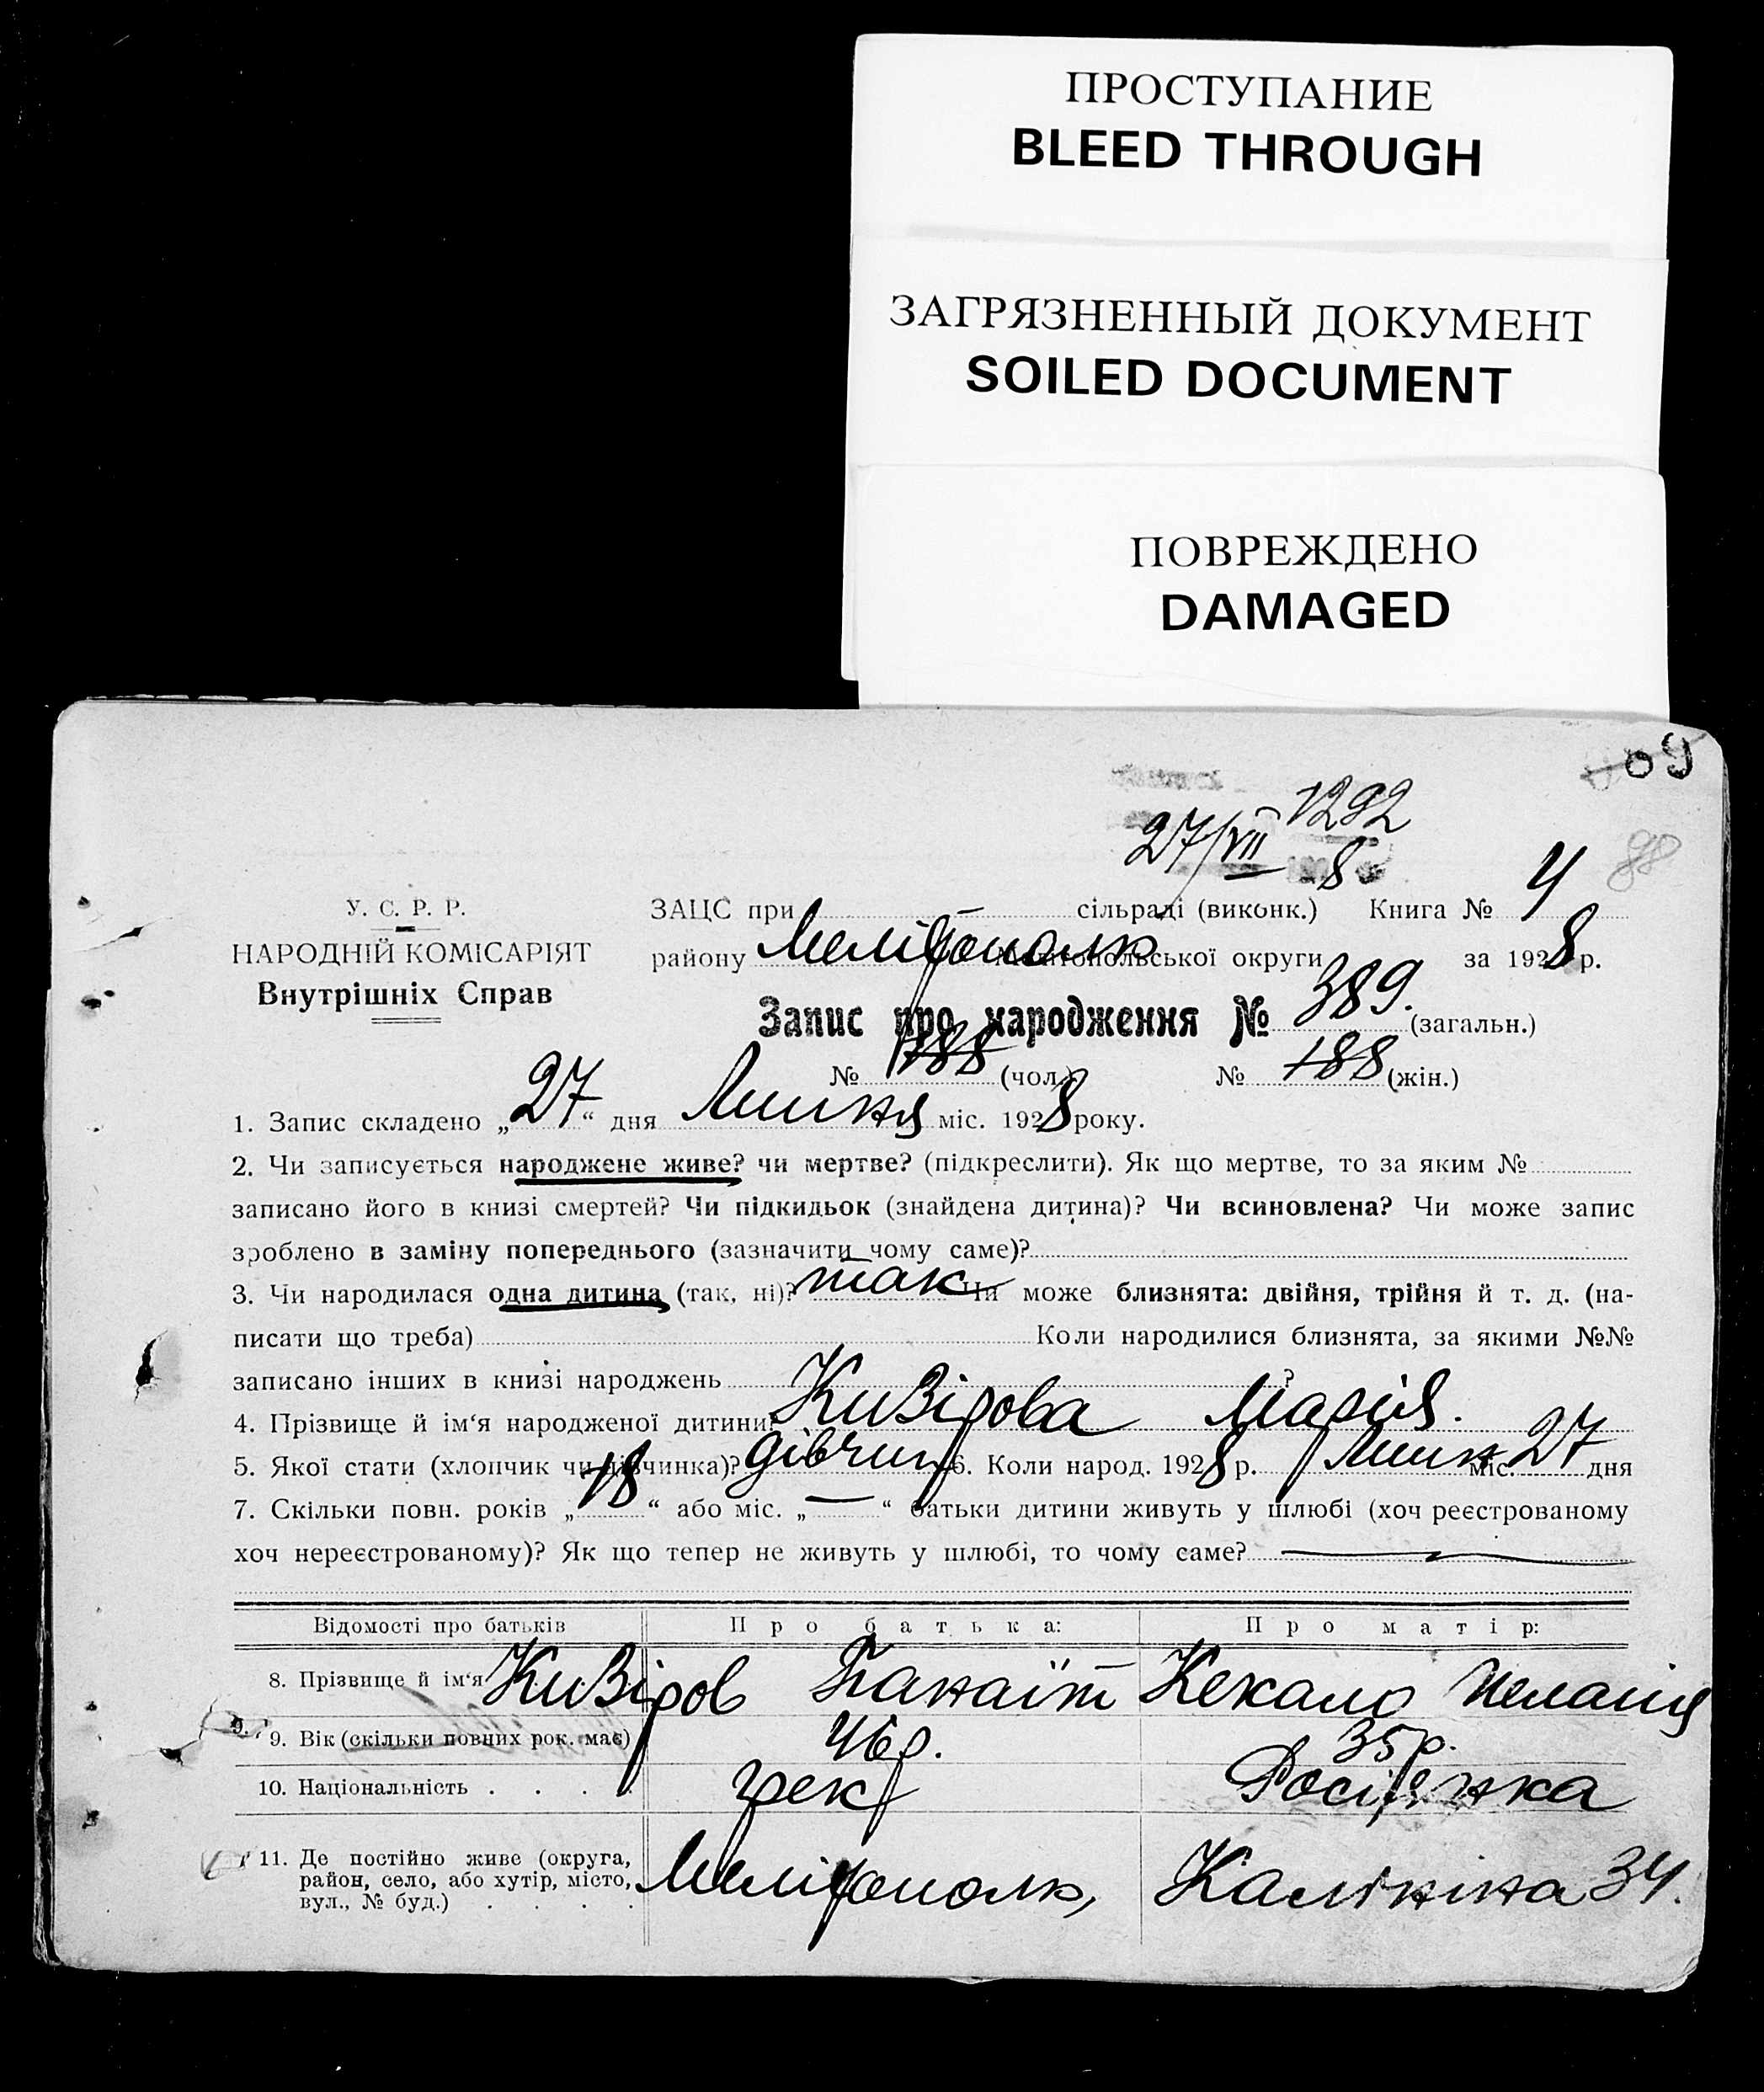 ПРОСТУПАНИЕ
BLEED THROUGH
ЗАГРЯЗНЕННЫЙ ДОКУМЕНТ
SOILED DOCUMENT
ПОВРЕЖДЕНО
DAMAGED
09
1292
27/VII 8
88
У. С. Р. Р.
НАРОДНІЙ КОМІСАРІЯТ
Внутрішніх Справ
ЗАЦС при сільраді (виконк.) Книга № 4
району Мелітополь Мелітопольської округи за 1928 р.
Запис про народження № 389. (загальн.)
№ 188 (чол.) № 188 (жін.)
1. Запис складено „27“ дня Липня міс. 1928 року.
2. Чи записується народжене живе? чи мертве? (підкреслити). Як що мертве, то за яким №
записано його в книзі смертей? Чи підкидьок (знайдена дитина)? Чи всиновлена? Чи може запис
зроблено в заміну попереднього (зазначити чому саме)?
3. Чи народилася одна дитина (так, ні)? так Чи може близнята: двійня, трійня й т. д. (на-
писати що треба) Коли народилися близнята, за якими №№
записано інших в книзі народжень ?
4. Прізвище й ім‘я народженої дитини: Кивірова Марія.
5. Якої стати (хлопчик чи дівчинка)? дівчин 6. Коли народ. 1928 р. Липн міс. 27 дня
7. Скільки повн. років „18“ або міс. „—“ батьки дитини живуть у шлюбі (хоч реєстрованому
хоч нереєстрованому)? Як що тепер не живуть у шлюбі, то чому саме? —
Відомості про батьків Про батька: Про матір:
8. Прізвище й ім‘я Кивіров Панаїт Кекало Пелагія
9. Вік (скільки повних рок. має) 46р. 35р.
10. Національність . . . . грек Росіянка
11. Де постійно живе (округа,
район, село, або хутір, місто,
вул., № буд.) . . . . Мелітополь, Калініна 34.